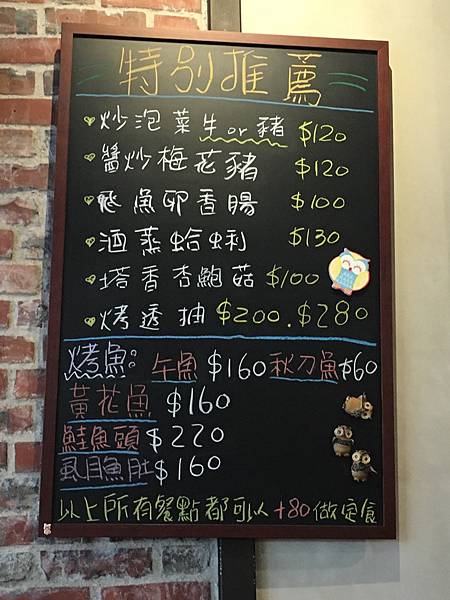 特別推薦
炒泡菜牛or豬 $120
醬炒梅花豬 $120
飛魚卵香腸 $100
酒蒸蛤蜊 $130
塔香杏鮑菇 $100
烤透抽 $200.$280
烤魚: 午魚 $160 秋刀魚 $60
黃花魚 $160
鮭魚頭 $220
虱目魚肚 $160
以上所有餐點都可以+80做定食